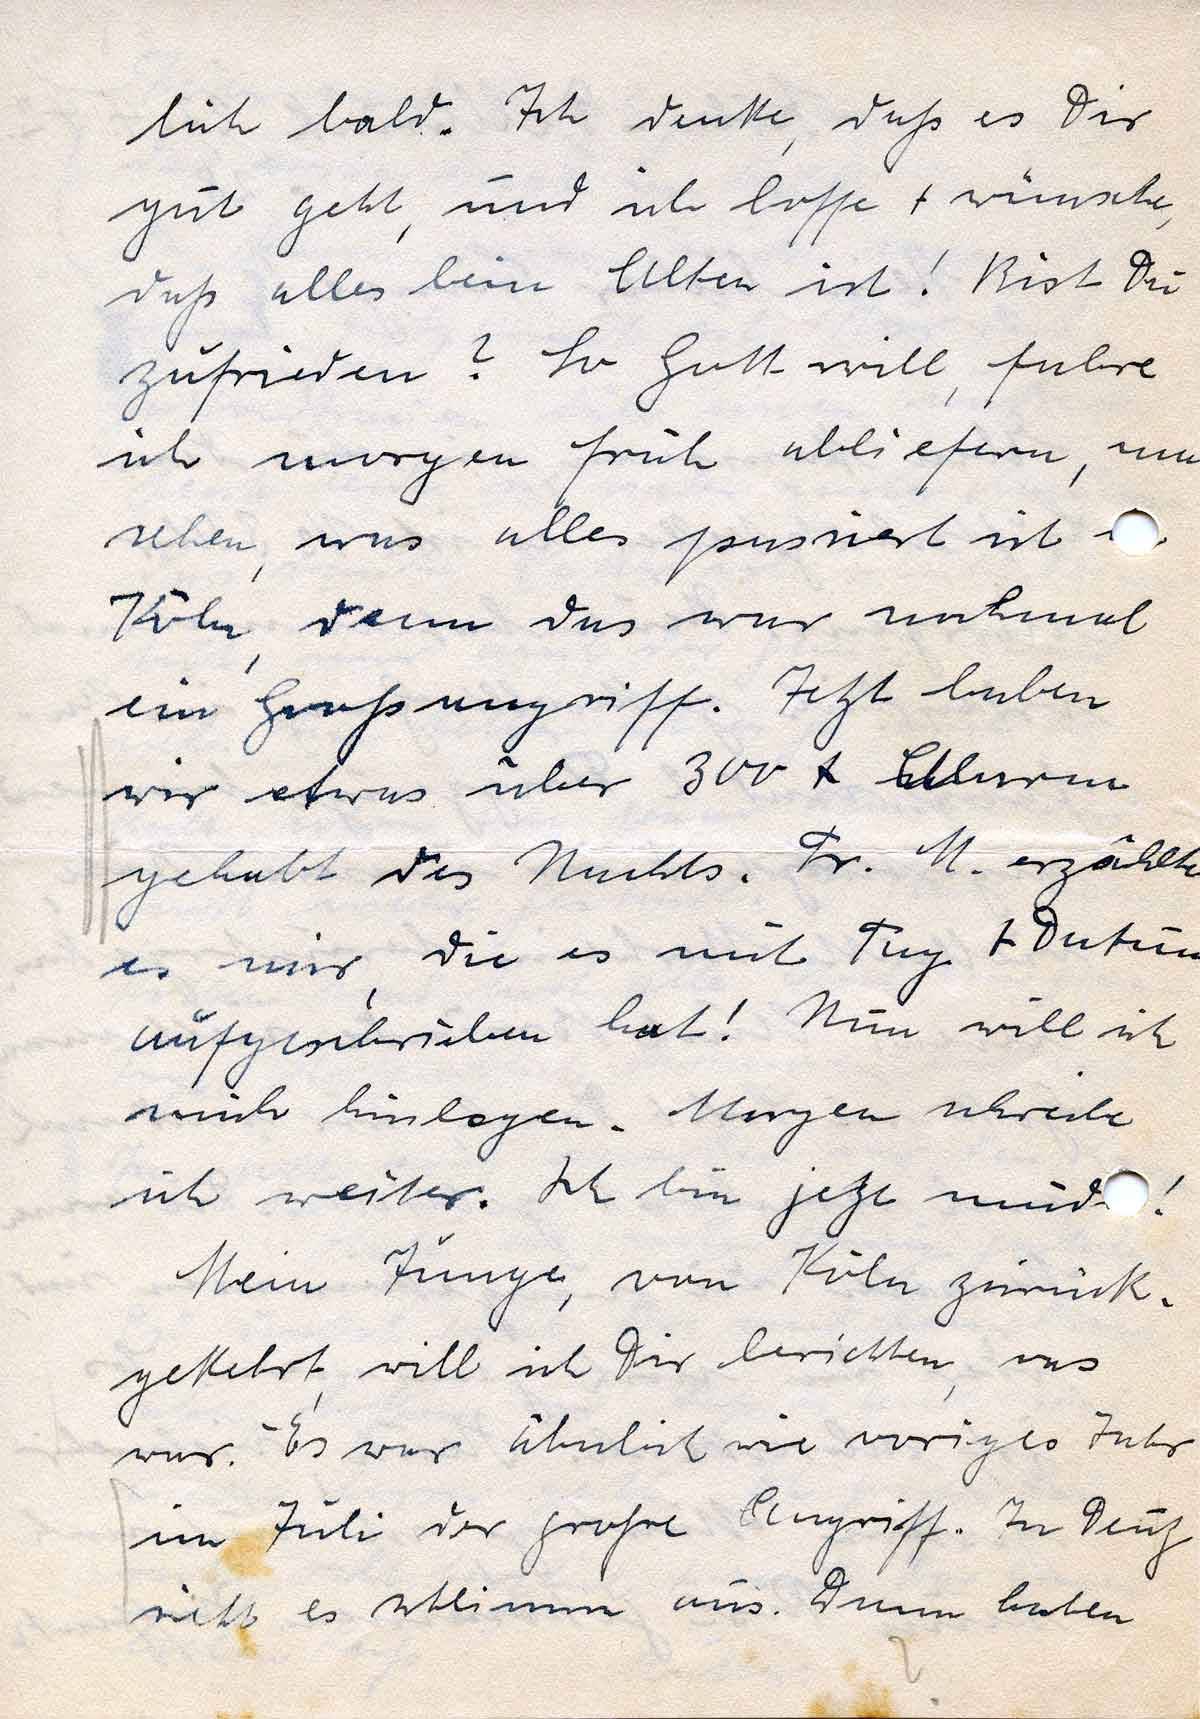 lich bald. Ich denke, daß es Dir
gut geht, und ich hoffe + wünsche,
daß alles beim Alten ist! Bist Du
zufrieden? So Gott will, fahre
ich morgen früh abliefern, mal
sehen, was alles passiert ist in
Köln, denn das war nochmal
ein Großangriff. Jetzt haben
wir etwas über 300 x Alarm
gehabt des Nachts. Fr. M. erzählte
es mir, die es mit Tag + Datum
aufgeschrieben hat! Nun will ich
mich hinlegen. Morgen schreibe
ich weiter. Ich bin jetzt müde!
Mein Junge, von Köln zurück-
gekehrt, will ich Dir berichten, was
war. Es war ähnlich wie voriges Jahr
im Juli der große Angriff. In Deutz
sieht es schlimm aus. Dann haben